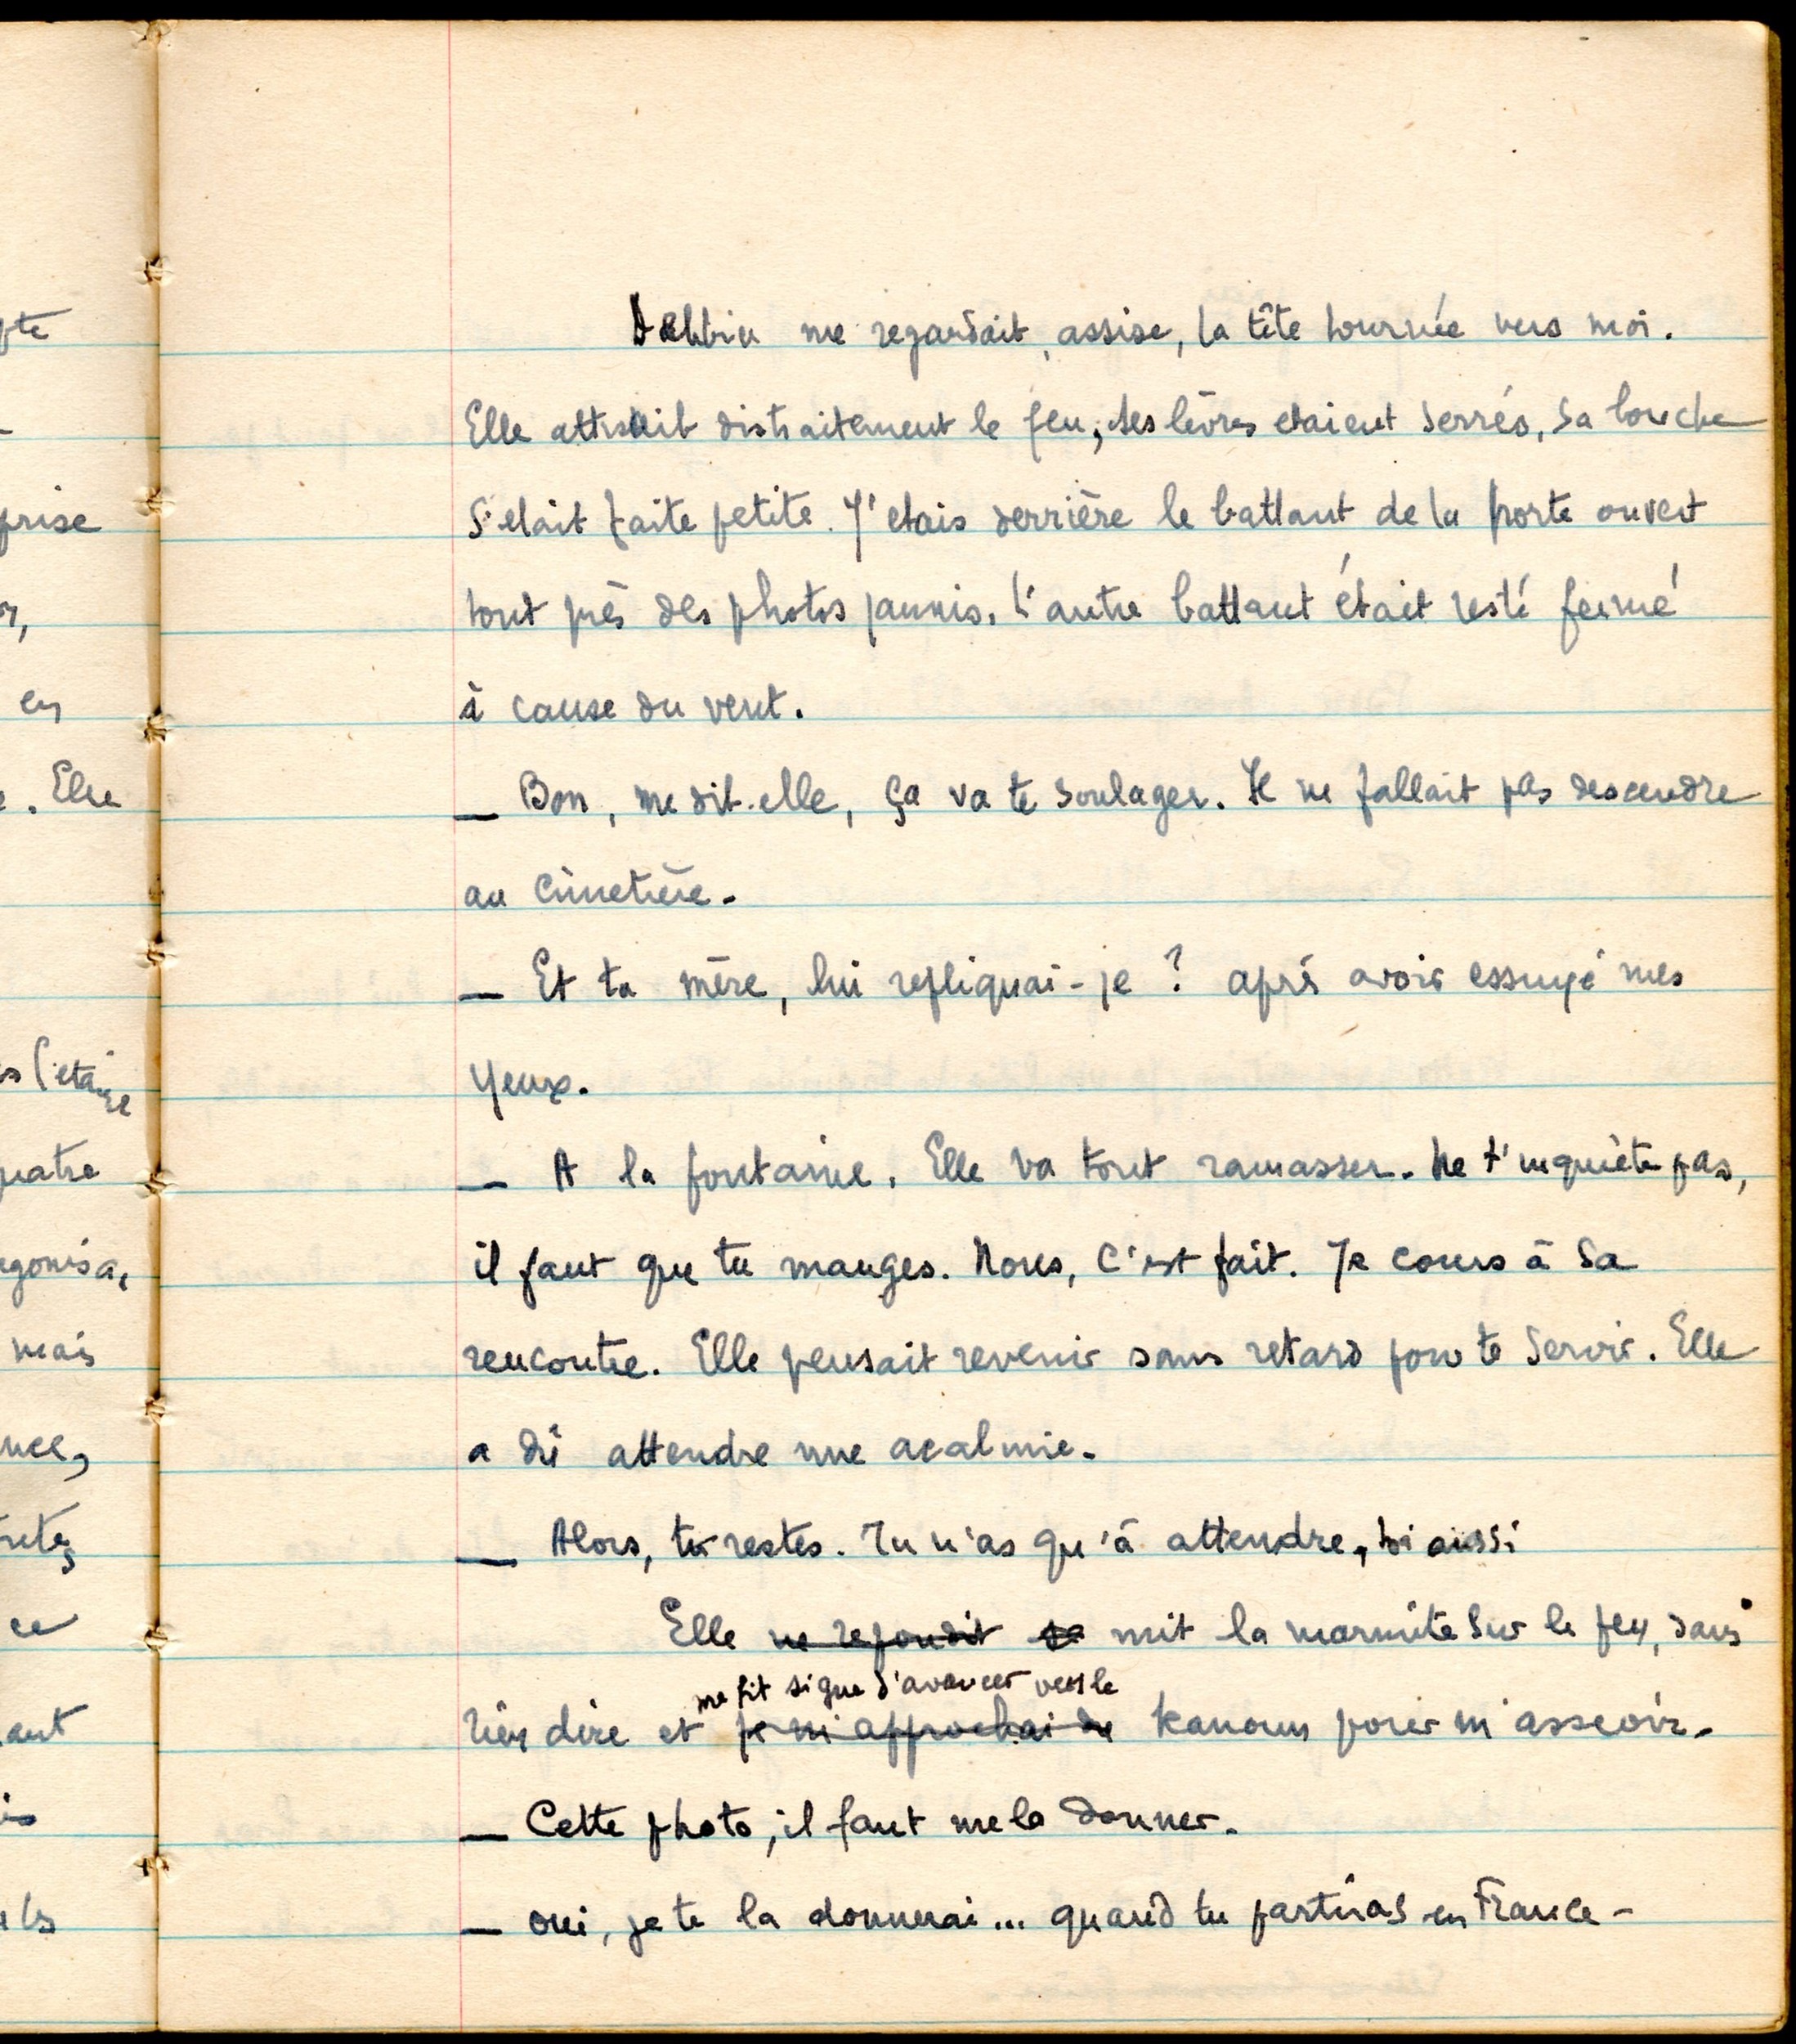 Dehbia me regardait, assise, la tête tournée vers moi.
Elle attisait distraitement le feu, ses lèvres etaient serrés, sa bouche
s'etait faite petite. J'etais derrière le battant de la porte ouvert
tout près des photos jaunis. l'autre battant était resté fermé
à cause du vent.
— Bon, me dit-elle, ça va te soulager. Il ne fallait pas descendre
au cimetière.
— Et ta mère, lui repliquai-je ? après avoir essuyé mes
yeux.
— A la fontaine. Elle va tout ramasser. Ne t'inquiète pas,
il faut que tu manges. Nous, c'est fait. Je cours à sa
rencontre. Elle pensait revenir sans retard pour te servir. Elle
a dû attendre une acalmie.
— Alors, tu restes. Tu n'as qu'à attendre, toi aussi
Elle ne repondit se mit la marmite sur le feu, sans
me fit signe d'avancer vers le
rien dire et je m'approchai du kanoun pour m'asseoir.
— Cette photo, il faut me la donner.
— oui, je te la donnerai... quand tu partiras en France -
pte
prise
en
. Elle
uatre
mais
ce